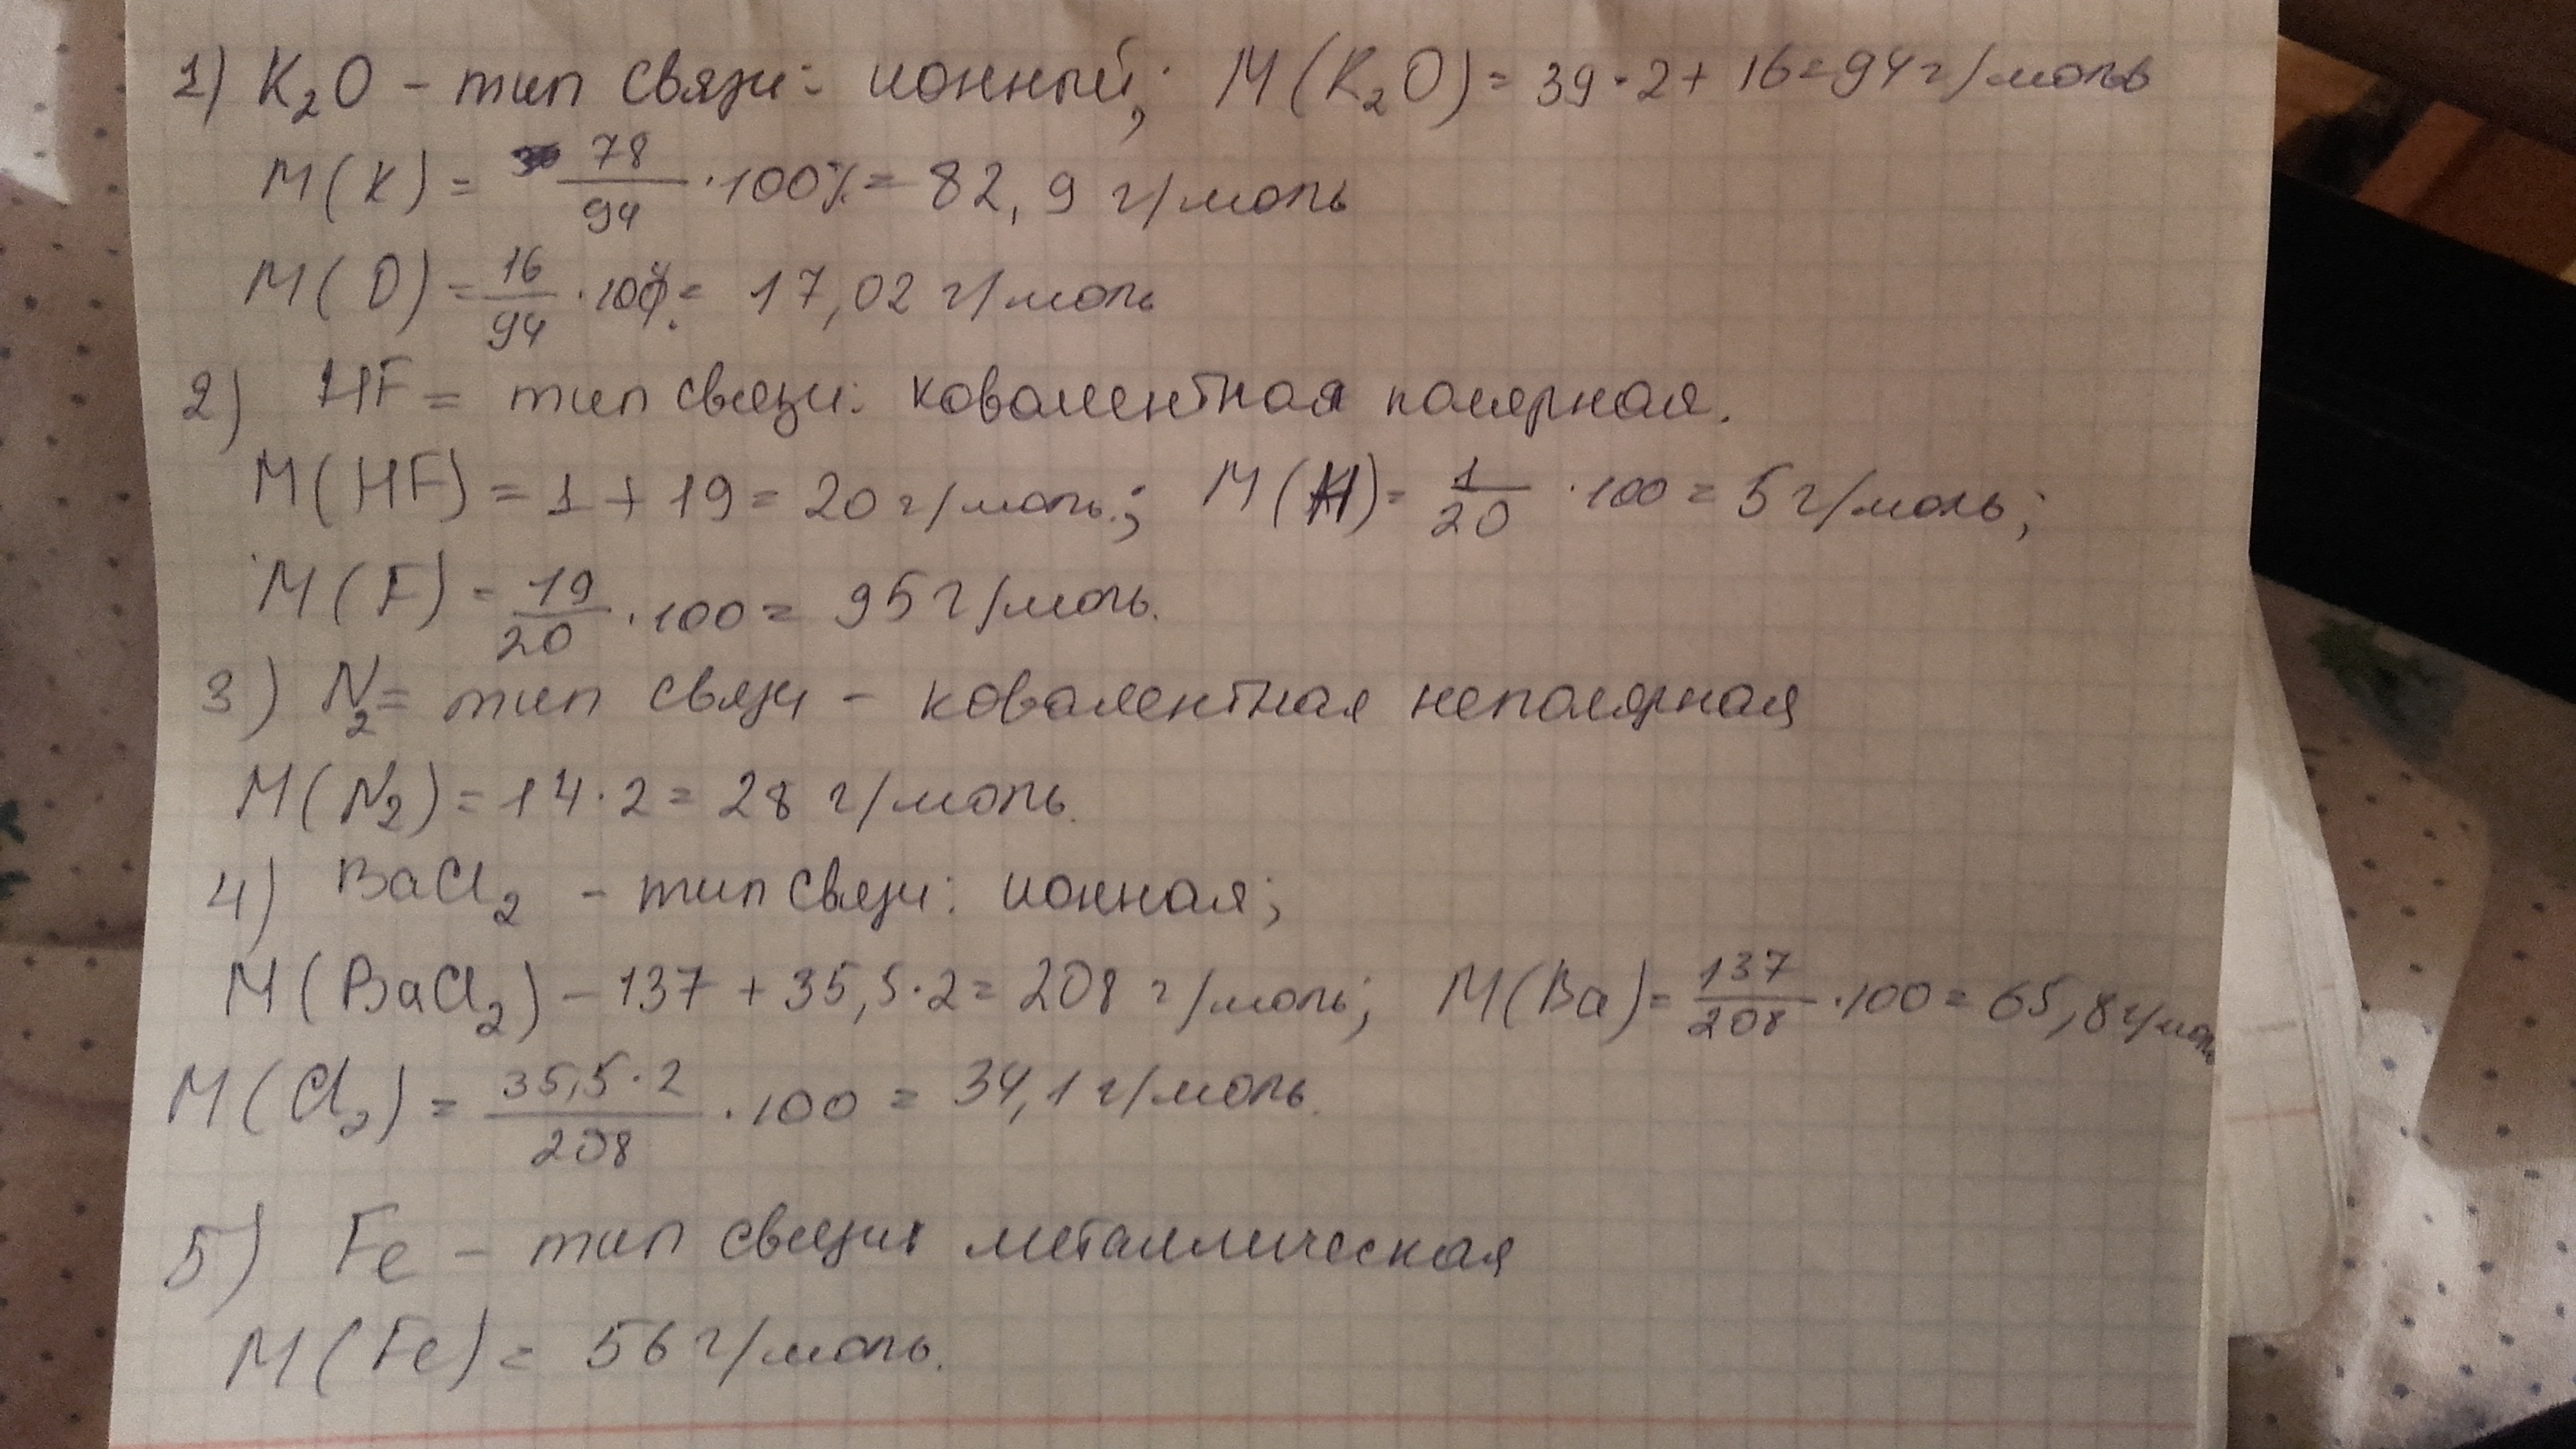 1) K₂O - тип связи: ионный; M(K₂O) = 39·2 + 16 = 94 г/моль
M(K) = 78/94 · 100% = 82,9 г/моль
M(O) = 16/94 · 100% = 17,02 г/моль
2) HF = тип связи: ковалентная полярная.
M(HF) = 1 + 19 = 20 г/моль.; M(H) = 1/20 · 100 = 5 г/моль;
M(F) - 19/20 · 100 = 95 г/моль.
3) N₂ = тип связи - ковалентная неполярная
M(N₂) = 14·2 = 28 г/моль.
4) BaCl₂ - тип связи: ионная;
M(BaCl₂) - 137 + 35,5·2 = 208 г/моль; M(Ba) = 137/208 · 100 = 65,8 г/моль
M(Cl₂) = 35,5·2/208 · 100 = 34,1 г/моль.
5) Fe - тип связи металлическая
M(Fe) = 56 г/моль.